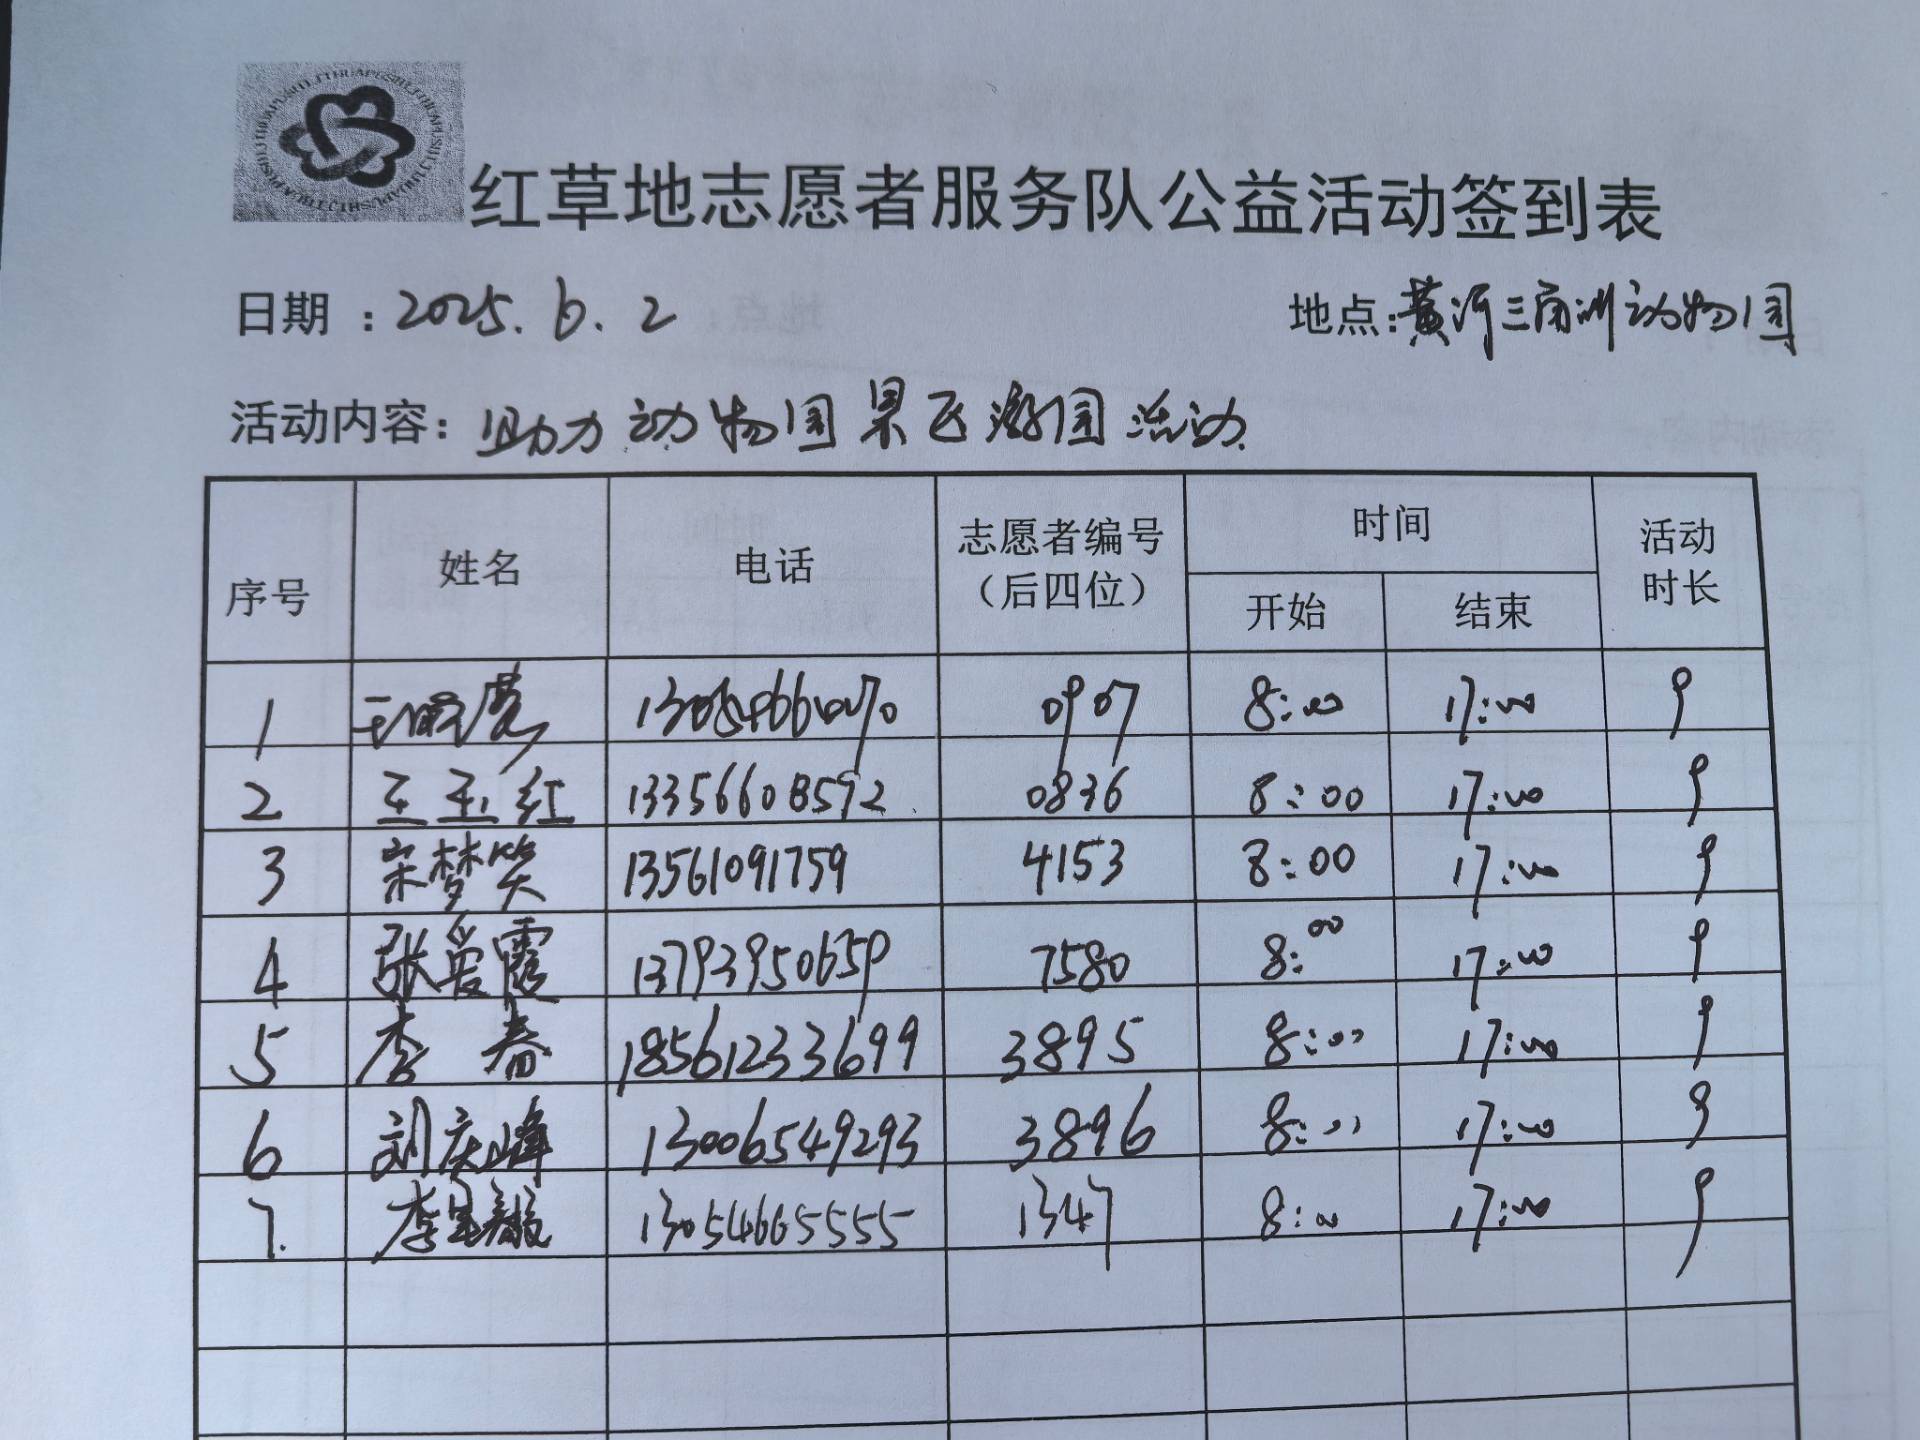 红草地志愿者服务队公益活动签到表
日期：2025.6.2 地点:黄河三角洲动物园
活动内容：助力动物园果飞游园活动
序号 姓名 电话 志愿者编号（后四位） 时间 开始 结束 活动时长
1 0907 8:00 17:00 9
2 王玉红 13356608592 0836 8:00 17:00 9
3 宋梦笑 13561091759 4153 8:00 17:00 9
4 张爱霞 13793950659 7580 8:00 17:00 9
5 李春 18561233699 3895 8:00 17:00 9
6 刘庆峰 13006549293 3896 8:00 17:00 9
7. 李 13054665555 1347 8:00 17:00 9